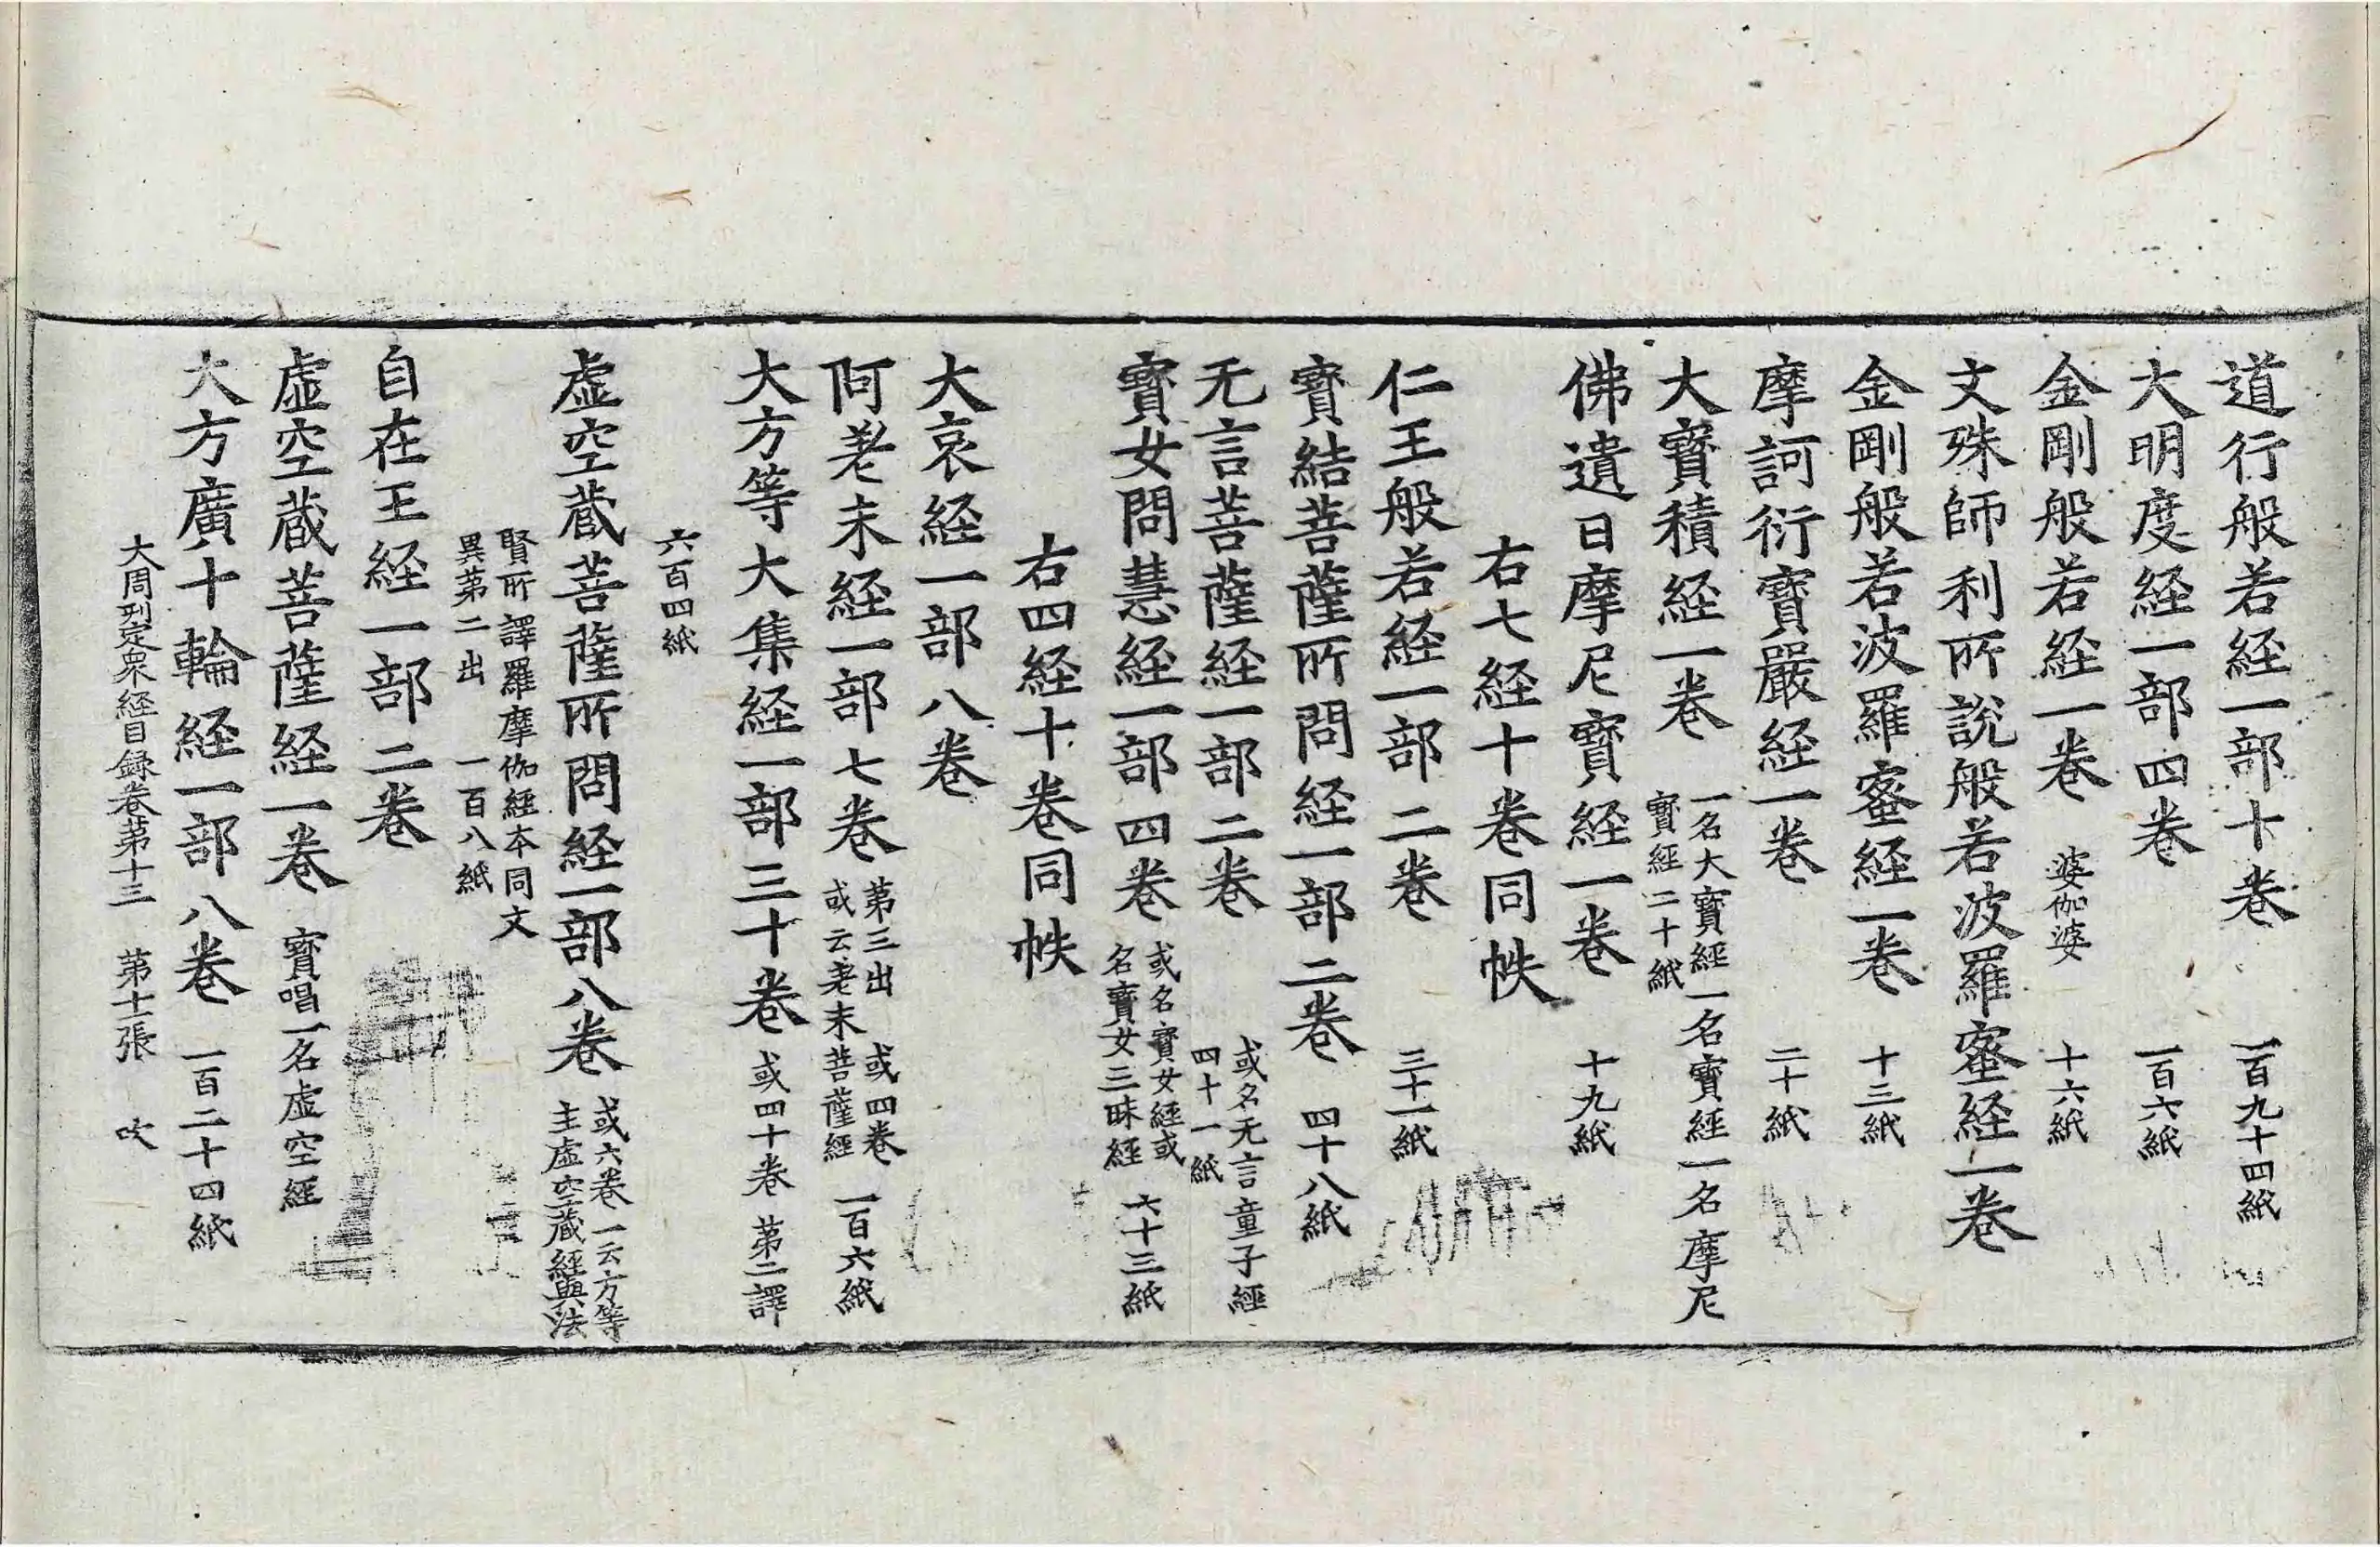 道行般若経一部十卷 一百九十四紙
大明度経一部四卷 一百六紙
金剛般若経一卷 婆伽婆 十六紙
文殊師利所說般若波羅蜜経一卷
金剛般若波羅蜜経一卷 十三紙
摩訶衍寶嚴経一卷 二十紙
大寶積経一卷 一名大寶經一名寶經一名摩尼
寶經二十紙
佛遺日摩尼寶経一卷 十九紙
右七経十卷同帙
仁王般若経一部二卷 三十一紙
寶結菩薩所問経一部二卷 四十八紙
无言菩薩経一部二卷 或名无言童子經
四十一紙
寶女問慧経一部四卷 或名寶女經或
名寶女三昧經 六十三紙
右四経十卷同帙
大哀経一部八卷
阿差末経一部七卷 第三出 或四卷
或云差末菩薩經 一百六紙
大方等大集経一部三十卷 或四十卷 第二譯
六百四紙
虛空藏菩薩所問経一部八卷 或六卷一云方等
主虛空藏經與法
賢所譯羅摩伽經本同文
異第二出 一百八紙
自在王経一部二卷
虛空藏菩薩経一卷 寶唱一名虛空經
大方廣十輪経一部八卷 一百二十四紙
大周刊定衆經目録卷第十三 第十一張 吹